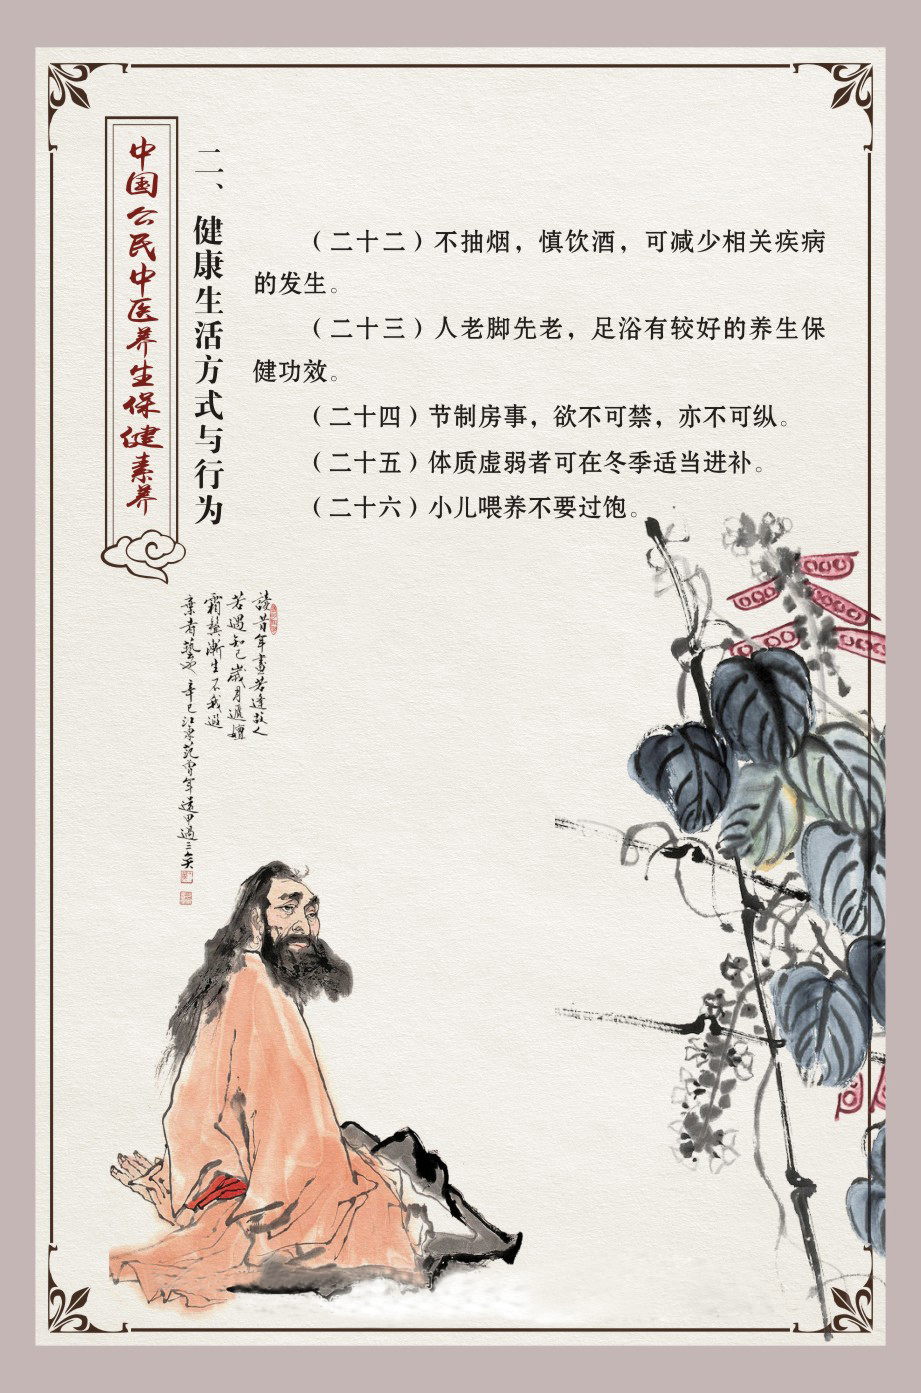 中国公民中医养生保健素养
二、健康生活方式与行为
（二十二）不抽烟，慎饮酒，可减少相关疾病
的发生。
（二十三）人老脚先老，足浴有较好的养生保
健功效。
（二十四）节制房事，欲不可禁，亦不可纵。
（二十五）体质虚弱者可在冬季适当进补。
（二十六）小儿喂养不要过饱。
读昔年画若逢故人
若遇知己岁月遞嬗
霜鬓渐生不我遐
弃者艺也辛巳江东范曾年逢甲過三矣